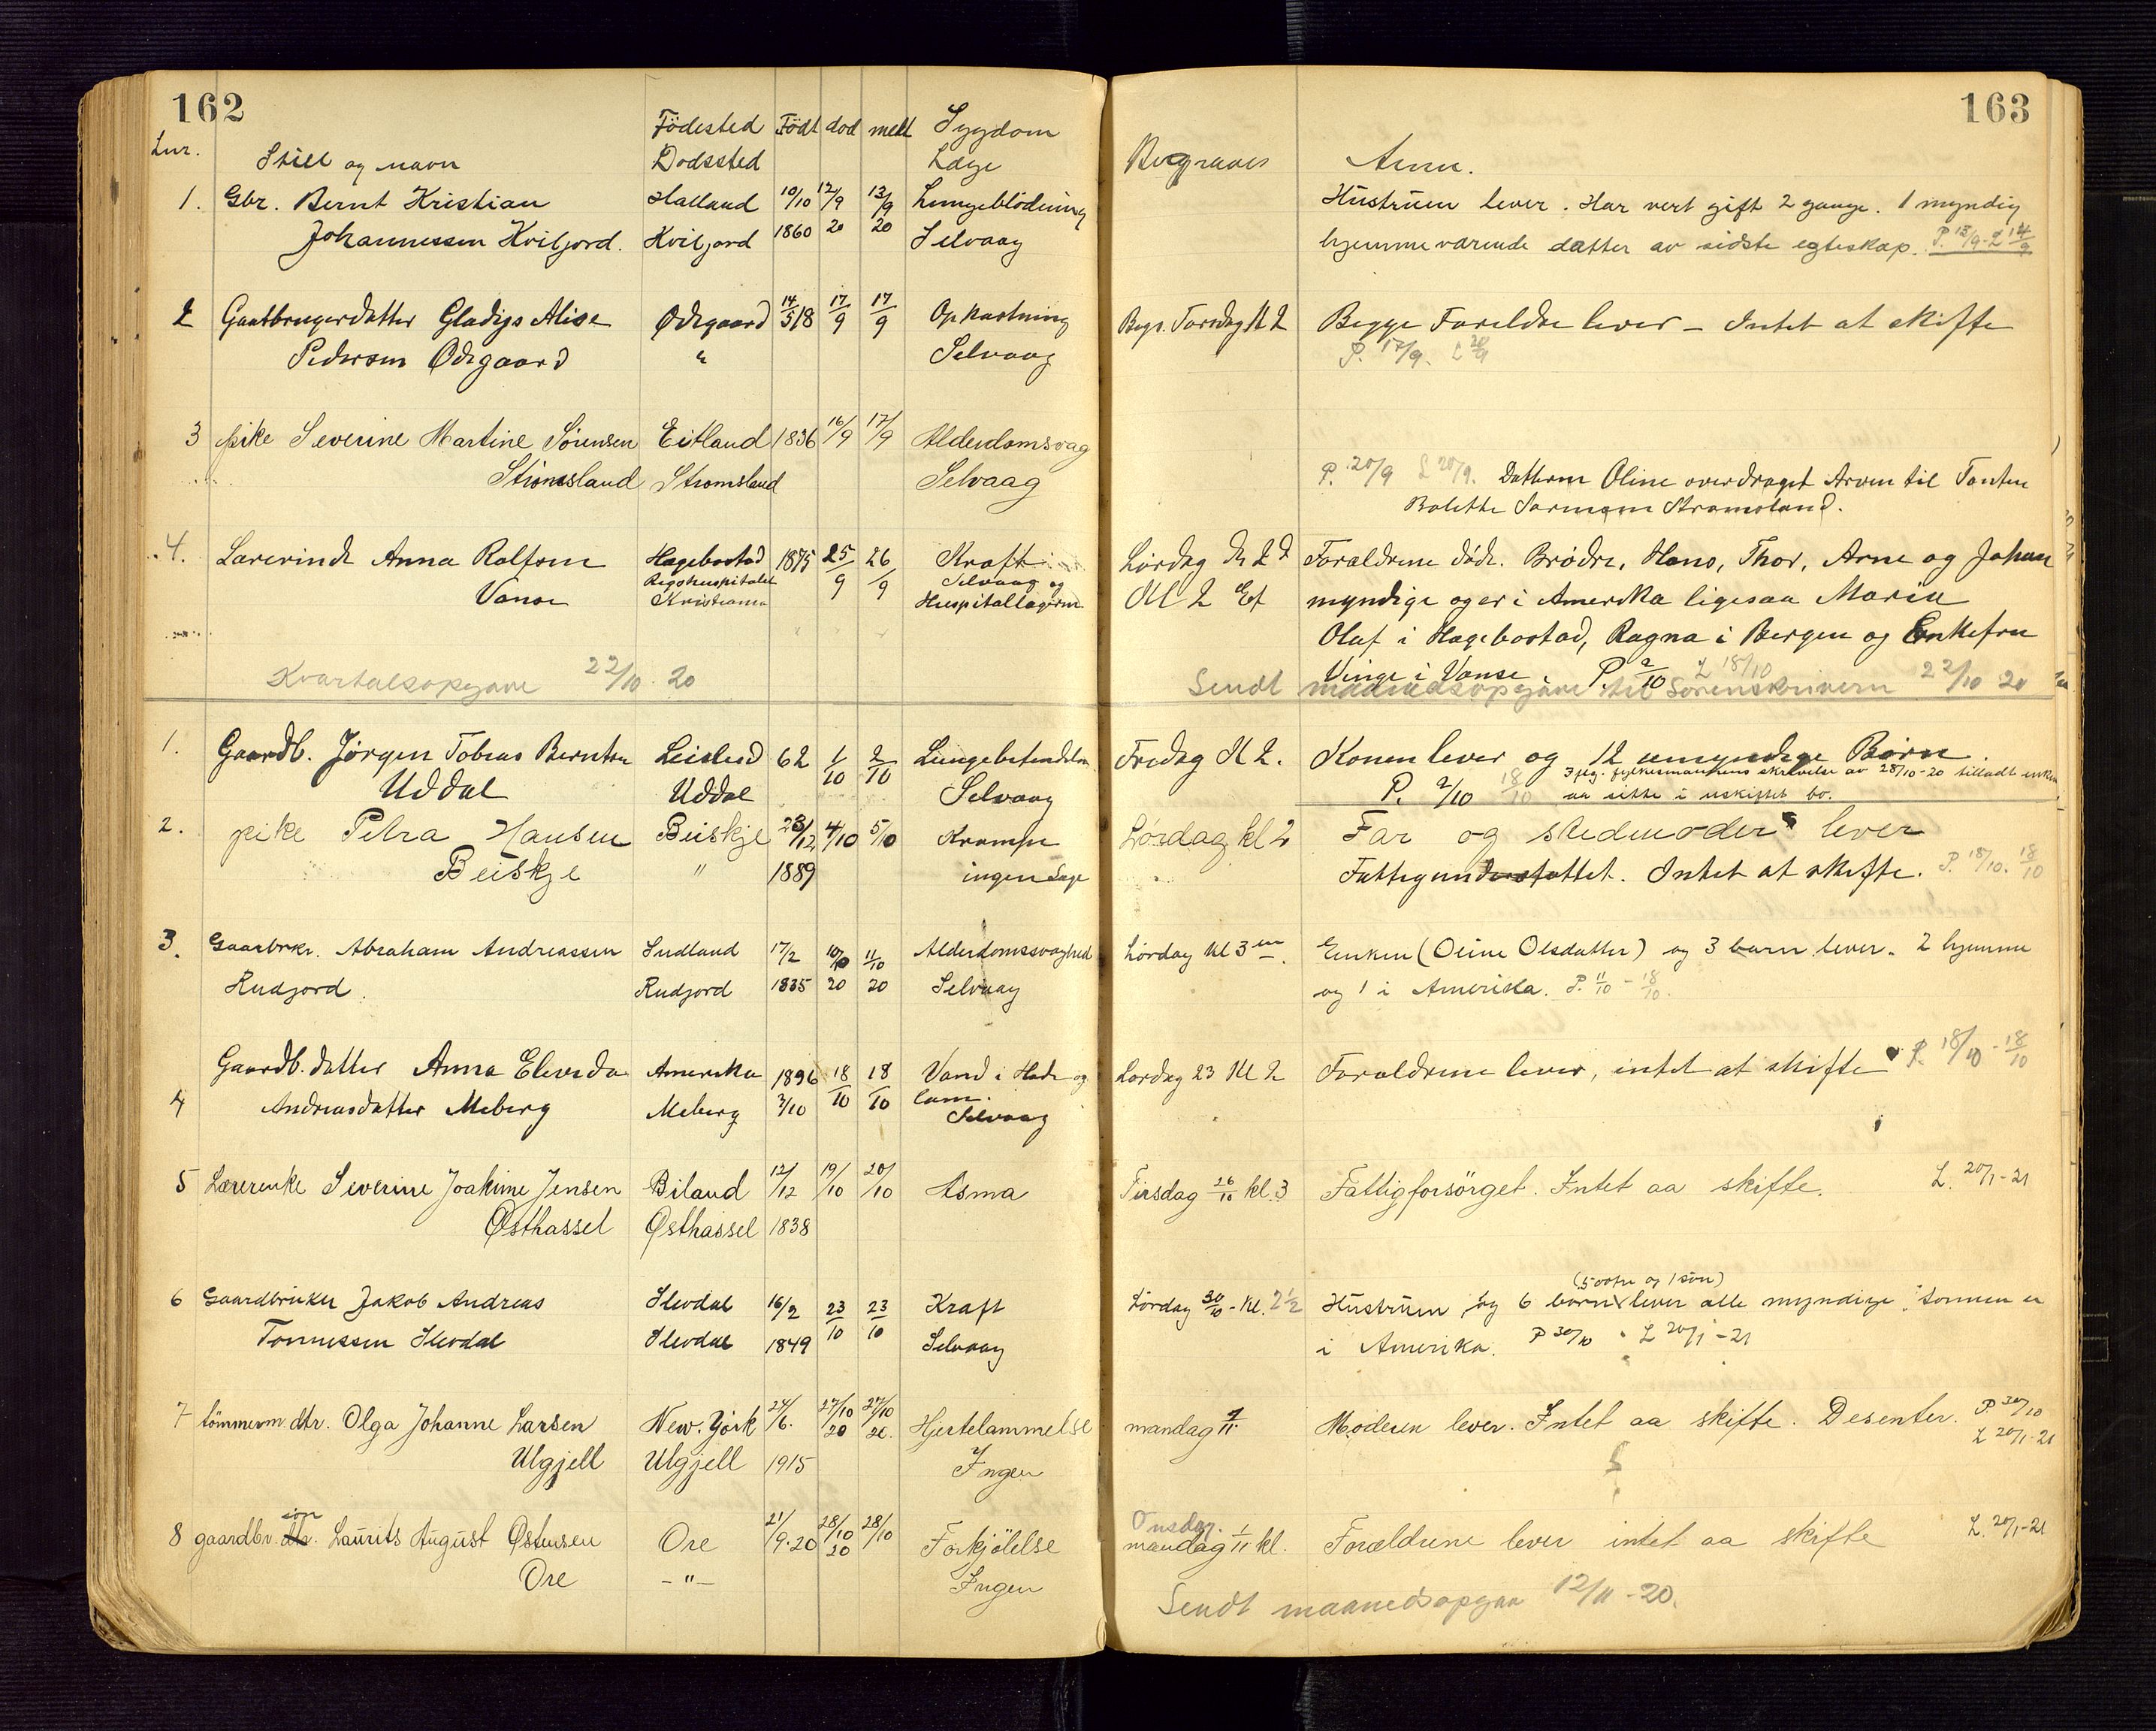 162
Födested Födt död meldt Sygdom
Lnr. Still og navn Dødssted Læge
1. Gbr. Bernt Kristian Halland 10/10 12/9 13/9 Lungeblödning
Johannessen Kviljord. Kviljord 1860 20 20 Selvaag
2 Gaardbrugerdatter Gladys Alise Ødegaard 14/5 18 17/9 17/9 Opkastning
Pedersen Ødegaard " Selvaag
3 pike Severine Martine Sörensen Eitland 1836 16/9 17/9 Alderdomsvag
Strömsland Strömsland Selvaag
4. Lærerinde Anna Rolfsen Hægebostad 1875 25/9 26/9 Kræft
Vanse Rigshospitalet Kristiania Selvaag og Hospitallægerne
Kvartalsopgave 22/10 20
1. Gaardb. Jørgen Tobias Berntsen 62 1/10 2/10 Lungebetendelse
Uddal Uddal Selvaag
2. pike Petra Hansen Beiskje 23/12 4/10 5/10 Krampe
Beiskje " 1889 ingen Læge
3. Gaardbrkr. Abraham Andreassen Sudland 17/2 10/10 11/10 Alderdomssvaghed
Rudjord. Rudjord 1835 20 20 Selvaag
Gaardb. datter Anna Elevida Amerika 1896 18/10 18/10 Vand i Hode og
4 Andreasdatter Meberg Meberg 2/10 Selvaag
5 Lærerenke Severine Joakime Jensen Biland 12/12 19/10 20/10 Asma
Østhassel Østhassel 1838
6 Gaardbruker Jakob Andreas Slevdal 16/2 23/10 23/10 Kræft
Tönnessen Slevdal Slevdal 1849 Selvaag
7 tömmerm. dtr. Olga Johanne Larsen New. York 24/6. 27/10 20 27/10 20. Hjertelammelse
Ulgjell Ulgjell 1915 Ingen
8 gaardbr. dtr. søn Laurits August Østensen Ore 21/9.20 28/10 20 28/10 Forkjölelse
Ore - " - Ingen
163
Begraves Anm.
Hustruen lever. Har vert gift 2 gange. 1 myndig
hjemmeværende datter av sidste egteskap. P. 13/9 - L 14/9
Begr. Torsdag Kl 2 Begge Foreldre lever - Intet at skifte
P. 17/9. L 20/9
P. 20/9 L 20/9. Datteren Oline overdraget Arven til Tanten
Bolette Strømsland.
Lørdag Kl 2 Forældrene døde. Brødre, Hans, Thor, Arne og Johan
myndige og er i Amerika ligesaa Marie
Olaf i Hægebostad, Ragna i Bergen og Enkefru
Vinge i Vanse. P. 2/10 L 18/10
Sendt maanedsopgave til Sorenskriveren 22/10 20
Fredag Kl 2. Konen lever og 12 umyndige Børn.
P. 2/10 18/10 Iflg. fylkesmandens skrivelse av 28/10-20 tilladt enken
aa sitte i uskiftet bo.
Lørdag kl 2 Far og stedmoder lever
Fattigunderstøttet. Intet at skifte. P. 18/10. 18/10
Lørdag Kl 3 em. Enken (Oline Olsdatter) og 3 barn lever. 2 hjemme
og 1 i Amerika. P. 11/10 - 18/10.
Lørdag 23 Kl 2 Forældrene lever, intet at skifte P. 18/10 - 18/10
Tirsdag 26/10 kl. 3 Fattigforsörget. Intet aa skifte. L. 20/1-21
(5 døtre og 1 søn)
Lördag 30/10 - Kl. 2 1/2 Hustruen og 6 børn lever alle myndige. Sønnen er
i Amerika. P 30/10 L 20/1-21
mandag 1/11. Moderen lever. Intet aa skifte. Desenter. P 30/10
L 20/1-21
Onsdag.
mandag 1/11 kl. Forældrene lever intet aa skifte L. 20/1-21
Sendt maanedsopgave 12/11-20.